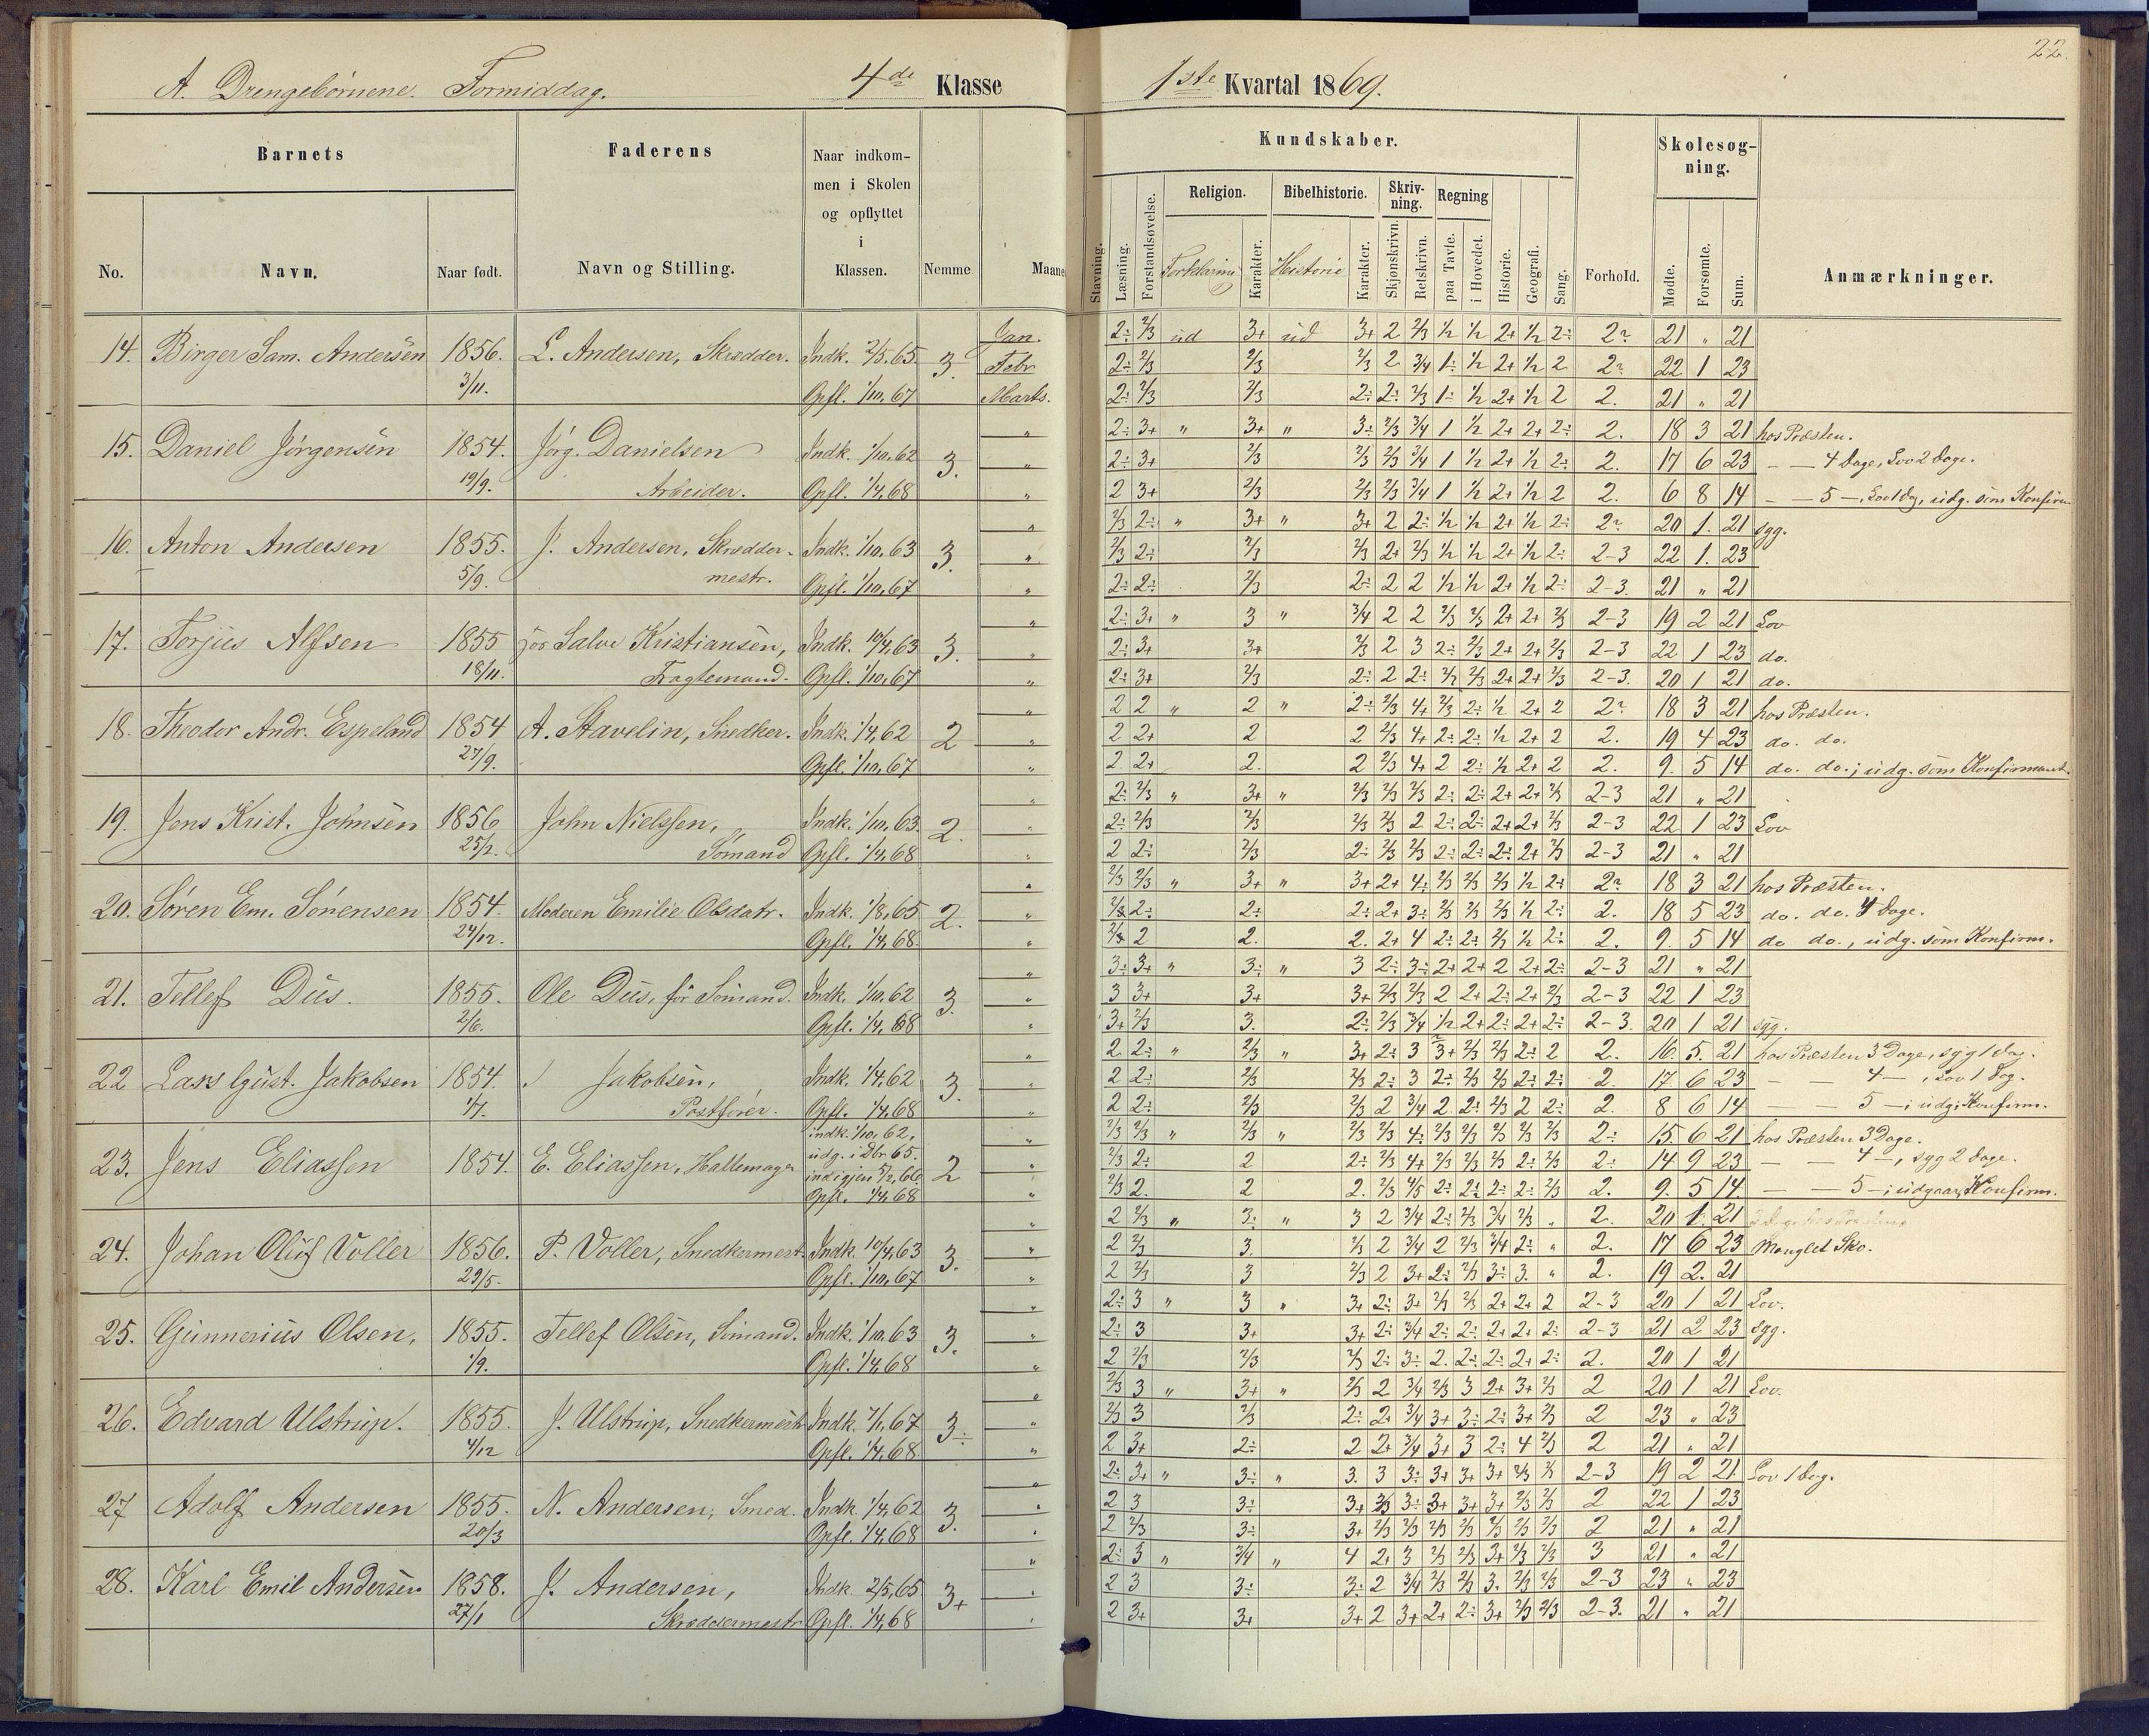 22.
A. Drengebörnene. Formiddag. 4de Klasse 1ste Kvartal 1869.
Barnets Faderens Naar indkommen i Skolen og opflyttet i Klassen. Nemme Kundskaber. Forhold. Skolesøgning. Anmærkninger.
No. Navn. Naar født. Navn og Stilling. Maaned
Stavning. Læsning. Forstandsøvelse. Religion. Forklaring Karakter. Bibelhistorie. Historie Karakter. Skrivning. Skjønskrivn. Retskrivn. Regning paa Tavle. i Hovedet. Historie. Geografi. Sang. Mødte. Forsømte. Sum.
14. Birger Sam. Andersen 1856. 3/11. L. Andersen, Skrædder. Indk. 2/5.65. Opfl. 1/10.67 3.
Jan. 2÷ 2/3 ud 3+ ud 3+ 2 2/3 1/2 1/2 2+ 1/2 2÷ 2? 21 " 21
Febr 2÷ 2/3 2/3 2/3 2 3/4 1÷ 1/2 2+ 1/2 2 2? 22 1 23
Marts. 2÷ 2/3 2/3 2÷ 2÷ 2/3 1÷ 1/2 2+ 1/2 2 2. 21 " 21
15. Daniel Jörgensen 1854. 19/9. Jörg. Danielsen Arbeider. Indk. 1/10.62 Opfl. 1/4.68 3.
" 2÷ 3+ " 3+ " 3÷ 2/3 3/4 1 1/2 2+ 2+ 2÷ 2. 18 3 21 hos Præsten.
" 2÷ 3+ 2/3 2/3 2/3 3/4 1 1/2 2+ 1/2 2÷ 2. 17 6 23 – – 4 Dage, Lov 2 Dage.
" 2 3+ 2/3 2/3 2/3 3/4 1 1/2 2+ 1/2 2 2. 6 8 14 – – 5 –, Lov 1 Dg, udg. som Konfirm
16. Anton Andersen 1855. 5/9. J. Andersen, Skræddermestr. Indk. 1/10.63 Opfl. 1/10.67 3.
" 2/3 2÷ " 3+ " 3+ 2 2÷ 1/2 1/2 2+ 1/2 2÷ 2? 20 1. 21 syg.
" 2/3 2÷ 2/3 2/3 2+ 2/3 1/2 1/2 2+ 1/2 2÷ 2-3 22 1. 23
" 2÷ 2÷ 2/3 2÷ 2 2 1/2 1/2 2+ 1/2 2÷ 2-3. 21 " 21
17. Torjus Alfsen 1855 18/11. for Salve Kristiansen, Fragtemand. Indk. 10/4.63 Opfl. 1/10.67 3.
" 2÷ 3+ " 3 " 3/4 2 2 2/3 2/3 2+ 2+ 2/3 2-3 19 2 21 Lov
" 2÷ 3+ 3+ 2/3 2 3 2÷ 2/3 2+ 2+ 2/3 2-3 22 1 23 do.
" 2÷ 3+ 2/3 2÷ 2 2÷ 2/3 2/3 2+ 2+ 2/3 2-3. 20 1 21 do.
18. Theodor Andr. Espeland 1854 27/9. A. Stavelin, Snedker. Indk. 1/4.62 Opfl. 1/10.67 2
" 2 2 " 2 " 2÷ 2/3 4+ 2/3 2÷ 1/2 2+ 2 2? 18 3 21 hos Præsten.
" 2 2+ 2 2 2/3 4+ 2÷ 2÷ 1/2 2+ 2 2. 19 4 23 do. do.
" 2 2+ 2. 2 2/3 4+ 2 2÷ 1/2 2+ 2 2. 9. 5 14 do. do.; udg. som Konfirmant.
19. Jens Krist. Johnsen 1856 25/2. John Nielsen, Sömand Indk. 1/10.63. Opfl. 1/4.68 2.
" 2÷ 2/3 " 3+ " 2/3 2/3 2/3 2÷ 2÷ 2+ 2+ 2/3 2-3 21 " 21
" 2÷ 2/3 2/3 2/3 2/3 2 2÷ 2÷ 2+ 2+ 2/3 2-3 22 1 23 Lov
" 2 2÷ 2/3 2÷ 2/3 2/3 2÷ 2÷ 2÷ 2+ 2/3 2-3 21 " 21
20. Sören Em. Sörensen 1854. 24/12. Moderen Emilie Olsdatr. Indk. 1/8.65 Opfl. 1/4.68 2.
" 2/3 2/3 " 3+ " 3+ 2+ 4÷ 2/3 2/3 2/3 1/2 2÷ 2? 18 3 21 hos Præsten.
" 2/3 2÷ 2÷ 2÷ 2+ 3÷ 2/3 2/3 2/3 1/2 2÷ 2. 18 5 23 do. do. 4 Dage.
" 2/3 2 2. 2. 2+ 4 2÷ 2÷ 2/3 1/2 2÷ 2. 9. 5 14 do do., udg. som Konfirm.
21. Tellef Dus. 1855. 2/6. Ole Dus, för Sömand. Indk. 1/10.62 Opfl. 1/4.68 3.
" 3÷ 3+ " 3÷ " 3 2÷ 3÷ 2+ 2+ 2 2+ 2÷ 2-3 21 " 21
" 3 3+ 3+ 3+ 2/3 2/3 2 2+ 2÷ 2+ 2/3 2-3 22 1 23
" 3+ 2/3 3. 2÷ 2/3 3/4 1/2 2+ 2÷ 2+ 2÷ 2-3. 20 1 21 syg.
22 Lars Gust. Jakobsen 1854. 1/7. Jakobsen, Postförer. Indk. 1/4.62 Opfl. 1/4.68 3.
" 2 2÷ " 2/3 " 3+ 2÷ 3 3+ 2/3 2/3 2÷ 2 2. 16. 5. 21 hos Præsten 3 Dage, syg 1 Dag.
" 2 2÷ 2/3 2/3 2÷ 3 2÷ 2/3 2/3 2÷ 2÷ 2. 17 6 23 – – 4 –, Lov 1 Dag.
" 2 2÷ 2/3 2/3 2 3/4 2 2÷ 2/3 2 2÷ 2. 8 6 14 – – 5 –; udg; Konfirm.
23. Jens Eliassen 1854. E. Eliassen, Hattemager indk. 1/10.62, udg. i Dbr 65. ind igjen 5/2.66 Opfl. 1/4.68 2
" 2/3 2/3 " 2/3 " 2/3 2/3 4÷ 2/3 2/3 2/3 2/3 2/3 2÷ 15. 6 21 hos Præsten 3 Dage.
" 2/3 2÷ 2 2÷ 2/3 4+ 2/3 2/3 2/3 2÷ 2/3 2÷ 14 9 23 – – 4 –, syg 2 Dage.
" 2/3 2. 2 2. 2/3 4/5 2÷ 2÷ 2÷ 2÷ 2/3 2. 9. 5 14. – – 5 –; udgaar, Konfirm.
24. Johan Oluf Voller 1856. 29/5. P. Voller, Snedkermest. Indk. 10/4.63 Opfl. 1/10.67 3.
" 2 2/3 " 3÷ " 3 2 3/4 2÷ 2/3 3/4 2/3 " 2. 20 1. 21
" 2 2/3 3. 2/3 2 3/4 2 2/3 3/4 2÷ " 2. 17 6 23 Manglet Sko.
" 2 2/3 3 2/3 2 3+ 2÷ 2/3 3÷ 3. " 2. 19 2. 21
25. Gunnerius Olsen, 1855. 1/9. Tellef Olsen, Sömand. Indk. 1/10.63 Opfl. 1/4.68 3.
" 2÷ 3 " 3 " 3+ 2÷ 3+ 2/3 2/3 2+ 2+ 2 2-3 20 1 21 Lov.
" 2÷ 3 3+ 3+ 2÷ 3/4 2÷ 2÷ 2+ 2+ 2÷ 2-3 21 2 23 syg.
" 2 2/3 2/3 2/3 2÷ 3÷ 2. 2÷ 2÷ 2+ 2÷ 2. 20 1 21
26. Edvard Ulstrup. 1855. 4/12 J. Ulstrup, Snedkermestr Indk. 7/1.67 Opfl. 1/4.68. 3÷
" 2/3 3 " 3+ " 2/3 2 3/4 2/3 3 2+ 3+ 2/3 2 20 1 21 Lov.
" 2/3 3 2/3 2÷ 2+ 3/4 3+ 3÷ 2÷ 3+ 2/3 2 23 " 23
" 2 3+ 2÷ 2 2+ 3/4 3+ 3 2÷ 4 2/3 2 21 " 21
27 Adolf Andersen 1855. 20/3 N. Andersen, Smed. Indk. 1/4.62 Opfl. 1/4.68 3.
" 2÷ 3+ " 3÷ " 3. 3 3÷ 3+ 3+ 3+ 2/3 2/3 2-3 19 2 21. Lov 1 Dag.
" 2 3 3÷ 3+ 2/3 3÷ 3+ 3+ 3+ 2/3 2/3 2 22 1 23
" 2 2/3 3÷ 3+ 2/3 2/3 2/3 2/3 2/3 2/3 2/3 2 21 " 21
28. Karl Emil Andersen 1858. 27/1 J. Andersen, Skræddermestr Indk. 2/5.65 Opfl. 1/4.68 3+
" 2÷ 3 " 3/4 " 4 2+ 3 2/3 2/3 3+ 2/3 2/3 3 21 " 21
" 2 3 3÷ 3÷ 2 3/4 2/3 2/3 3. 2/3 2/3 2-3 23 " 23
" 2 3+ 3+ 3+ 2 3+ 2+ 2÷ 3+ 2/3 2/3 2-3. 21 " 21